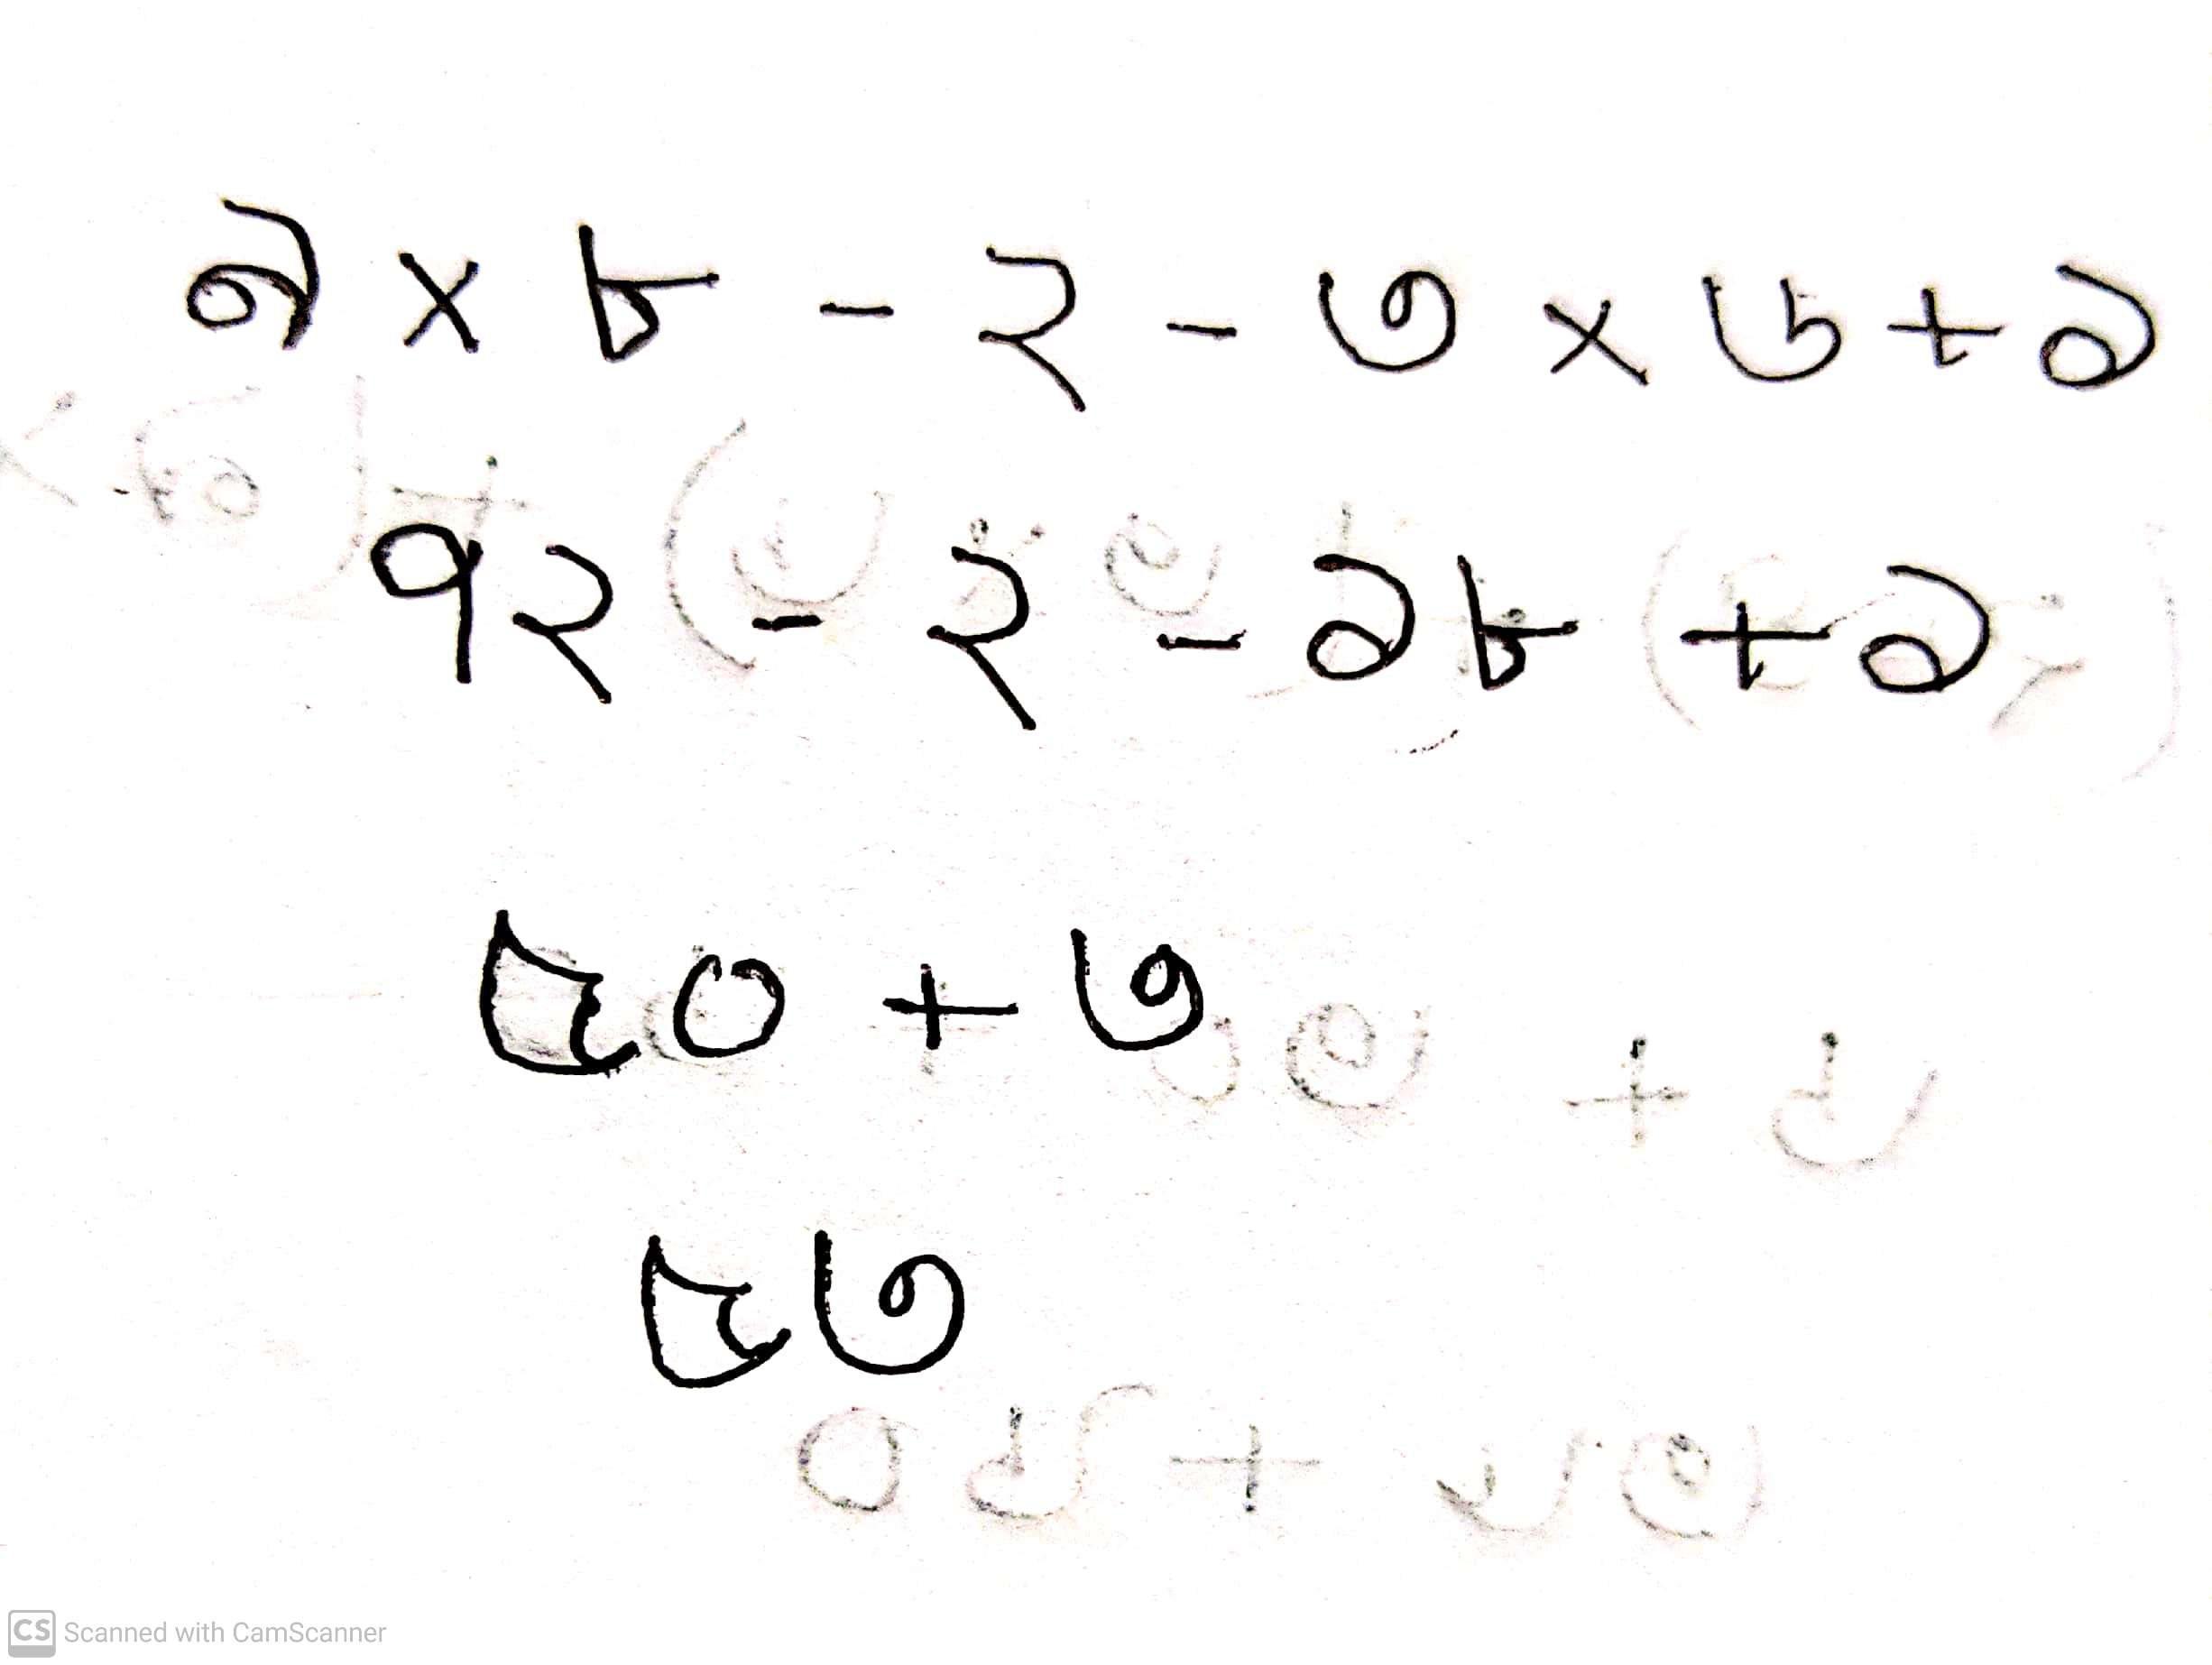 ৯ × ৮ - ২ - ৩ × ৬ + ১
৭২ - ২ - ১৮ + ১
৫০ + ৩
৫৩
CS Scanned with CamScanner